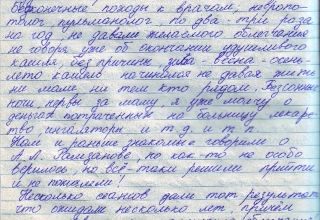 бесконечные походы к врачам, невропо-
толог пульманолог то два - три раза
на год, не давали желаемого облегчения
не говоря уже об окончании душимого
кашля, без причины зима - весна - осень-
лето кашель начинался не давая жить
ни маме, ни тем кто рядом. Бессонные
ночи, нервы за маму, я уже молчу о
деньгах потраченных на больницу лекарс
тво, ингаляторы и т.д. и т.п.
Нам и раньше знакомые говорили о
А.Л. но как-то не особо
верилось, но всё-таки решили прийти
и не пожалели!
Несколько сеансов дали тот результат
что ожидали несколько лет, причём